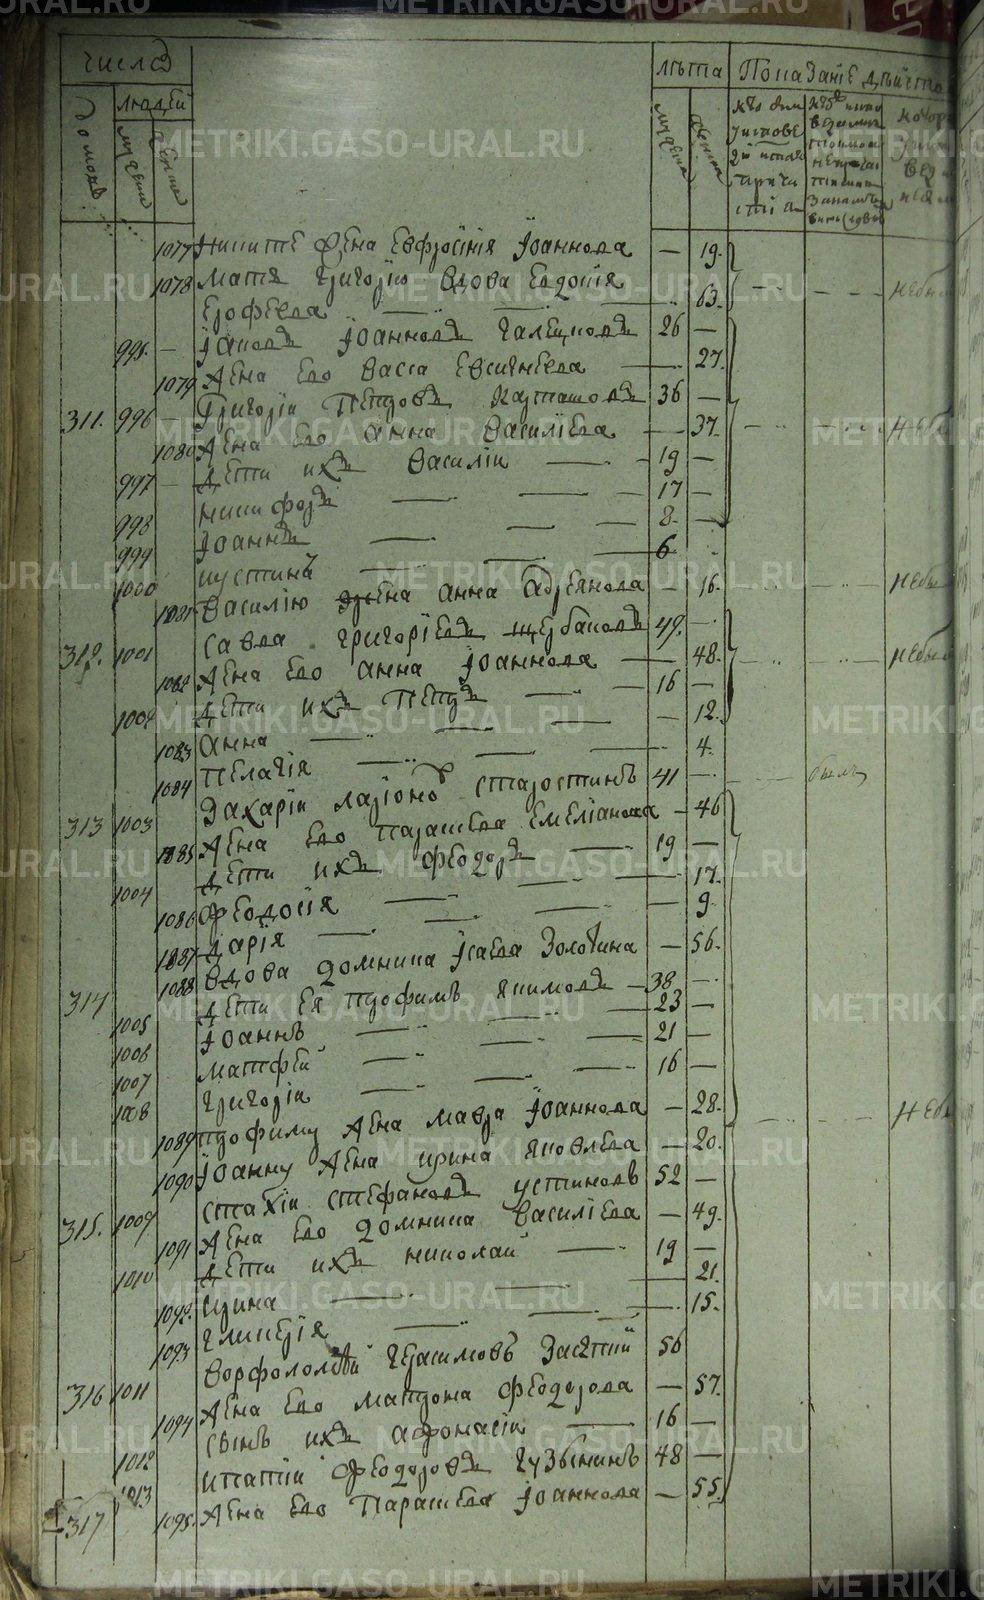 числа
лѣта Показанiе дѣйств
домовъ
людей
мужеска
женска
мужеска
женска
1077 Никитѣ жена Евфросинiя Iоаннова — 19.
1078 Мати Григорiю вдова Евдокiя
Ерофеева — 63. небы
995. Iаковъ Iоанновъ Галецковъ 26 —
1079 жена его Васса Евсигнеева — 27.
311. 996 Григорiи Петровъ Карташовъ 36 —
1080 жена его Анна Василiева — 37. небы
997 дети ихъ Василiи 19 —
998 Никифоръ 17 —
999 Iоаннъ 8 —
1000 Иустинъ 6
1081 Василiю жена Анна Адрeянова — 16. небы
312. 1001 Савва Григорiевъ Щербаковъ 49. —
1082 жена его Анна Iоаннова — 48. небы
1002 дети ихъ Петръ 16 —
1083 Анна — 12.
1084 Пелагiя 4.
313 1003 Захарiи Ларiоновъ Старостинъ 41 — былъ
1085 жена его Парасковa Емелiанова — 46
1004 дети ихъ Феодоръ 19 —
1086 Феодосiя 17.
1087 Дарiя — 9
314 1088 вдова Домника Исаева Золотина — 56.
1005 дети ея Трофимъ Якимовъ 38 —
1006 Iоаннъ 23 —
1007 Матфей 21 —
1008 Григорiи 16 —
1089 Трофиму жена Мавра Iоаннова — 28. небы
1090 Iоанну жена Ирина Яковлева — 20.
315. 1009 Стахiи Стефановъ Устиновъ 52 —
1091 жена его Домника Василiева — 49.
1010 дети ихъ Николай 19 —
1092. Ирина 21.
1093 Гликерiя 15.
316 1011 Ворфоломей Герасимовъ 56
1094 жена его Матрона Феодорова — 57.
1012 сынъ ихъ Афонасiи 16 —
317 1013 Ипатiи Феодоровъ 48 —
1095. жена его Парасковa Iоаннова — 55.
METRIKI.GASO-URAL.RU